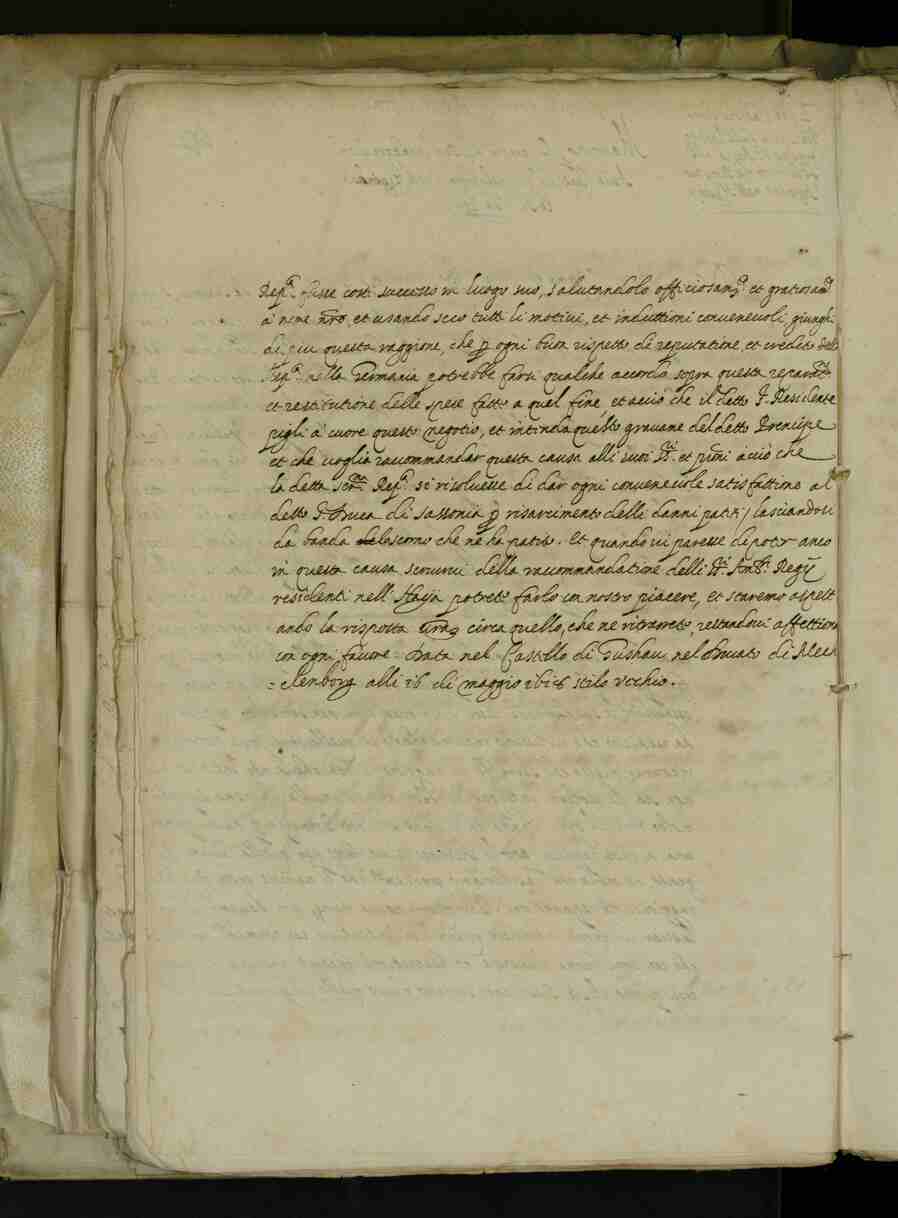 Rep.ca fusse costì successo in luogo suo, salutandolo officiosam.te et gratiosam.te
à nome nr̃o et usando seco tutti li motivi, et induttioni convenevoli giungh.
di piu questa raggione, che p ogni buon rispetto di reputatione, et credito della
Rep.ca nella Germania potrebbe farsi qualche accordio sopra questa reparat.ne
et restitutione delle spese fatte a quel fine et acciò che il detto S.r Residente
pigli à cuore questo negotio, et intenda questo gravame del detto Prencipe
et che voglia raccommandar questa causa alli suoi SS.ri et p̃roni acciò che
la detta Ser.ma Rep.ca si risolvesse di dar ogni convenevole satisfattione al
detto S.r Duca di Sassonia p risarcimento delli danni patiti, lasciandovi
da banda lo scorno che ne ha patito. Et quando vi paresse di poter anco
in questa causa servirvi della raccommandatione delli SS.ri Amb.ri Regij
residenti nell'Haya potrete farlo con nostro piacere, et staremo aspett
ando la risposta vr̃a circa quello, che ne ritrarrete, restandovi affettion
con ogni favore. Data nel Castello di Gushau nel Ducato di Mec
=clenborg alli 16 di maggio 1618 stilo vecchio.